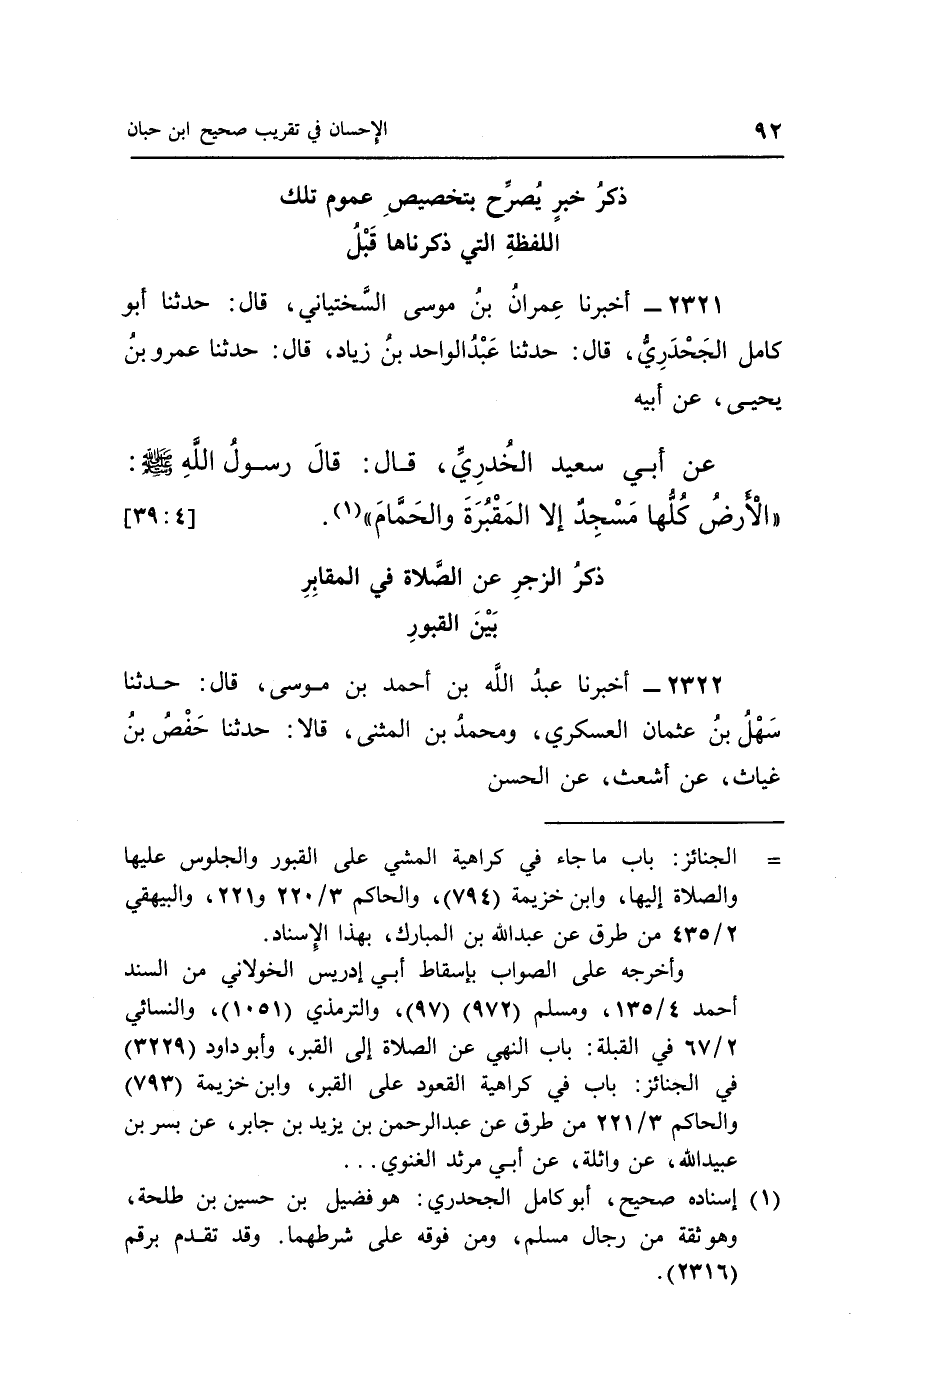 ٩٢ الإحسان في تقريب صحيح ابن حبان
ذكرُ خبرٍ يُصرِّح بتخصيصِ عموم تلك
اللفظةِ التي ذكرناها قَبْلُ
٢٣٢١ ــ أخبرنا عِمرانُ بنُ موسى السَّختياني، قال: حدثنا أبو
كامل الجَحْدَرِيُّ، قال: حدثنا عَبْدُالواحد بنُ زياد، قال: حدثنا عمرو بنُ
يحيـى، عن أبيه
عن أبـي سعيد الخُدريِّ، قـال: قالَ رسـولُ اللَّهِ ﷺ:
«الْأَرضُ كُلُّها مَسْجِدٌ إلا المَقْبُرَةَ والحَمَّامَ»(١). [٣٩:٤]
ذكرُ الزجرِ عن الصَّلاة في المقابِرِ
بَيْنَ القبورِ
٢٣٢٢ ــ أخبرنا عبدُ اللَّه بن أحمد بن مـوسى، قال: حـدثنا
سَهْلُ بنُ عثمان العسكري، ومحمدُ بن المثنى، قالا: حدثنا حَفْصُ بنُ
غياث، عن أشعث، عن الحسن
= الجنائز: باب ما جاء في كراهية المشي على القبور والجلوس عليها
والصلاة إليها، وابن خزيمة (٧٩٤)، والحاكم ٢٢٠/٣ و٢٢١، والبيهقي
٤٣٥/٢ من طرق عن عبدالله بن المبارك، بهذا الإسناد.
وأخرجه على الصواب بإسقاط أبـي إدريس الخولاني من السند
أحمد ١٣٥/٤، ومسلم (٩٧٢) (٩٧)، والترمذي (١٠٥١)، والنسائي
٦٧/٢ في القبلة: باب النهي عن الصلاة إلى القبر، وأبو داود (٣٢٢٩)
في الجنائز: باب في كراهية القعود على القبر، وابن خزيمة (٧٩٣)
والحاكم ٢٢١/٣ من طرق عن عبدالرحمن بن يزيد بن جابر، عن بسر بن
عبيدالله، عن واثلة، عن أبـي مرثد الغنوي...
(١) إسناده صحيح، أبو كامل الجحدري: هو فضيل بن حسين بن طلحة،
وهو ثقة من رجال مسلم، ومن فوقه على شرطهما. وقد تقـدم برقم
(٢٣١٦).